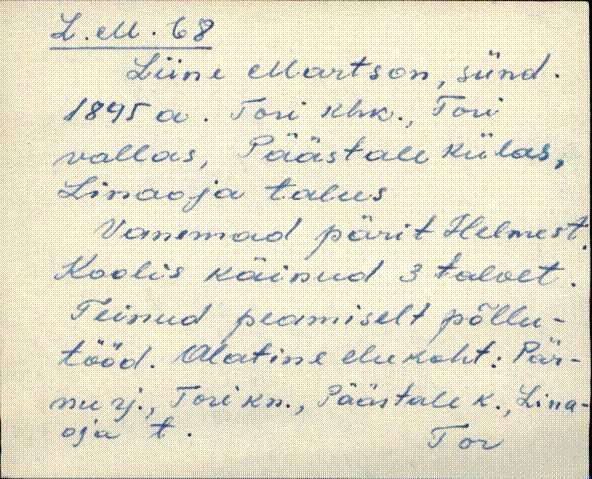 L.M. 68
Liine Martson, sünd.
1895 a. Tori khk., Tori
vallas, Päästale külas,
Linaoja talus
Vanemad pärit Helmest.
Koolis käinud 3 talvet.
Teinud peamiselt põllu-
tööd. Alatine elukoht: Pär-
nu rj., Tori kn., Päästale k., Lina-
oja t.
Tor